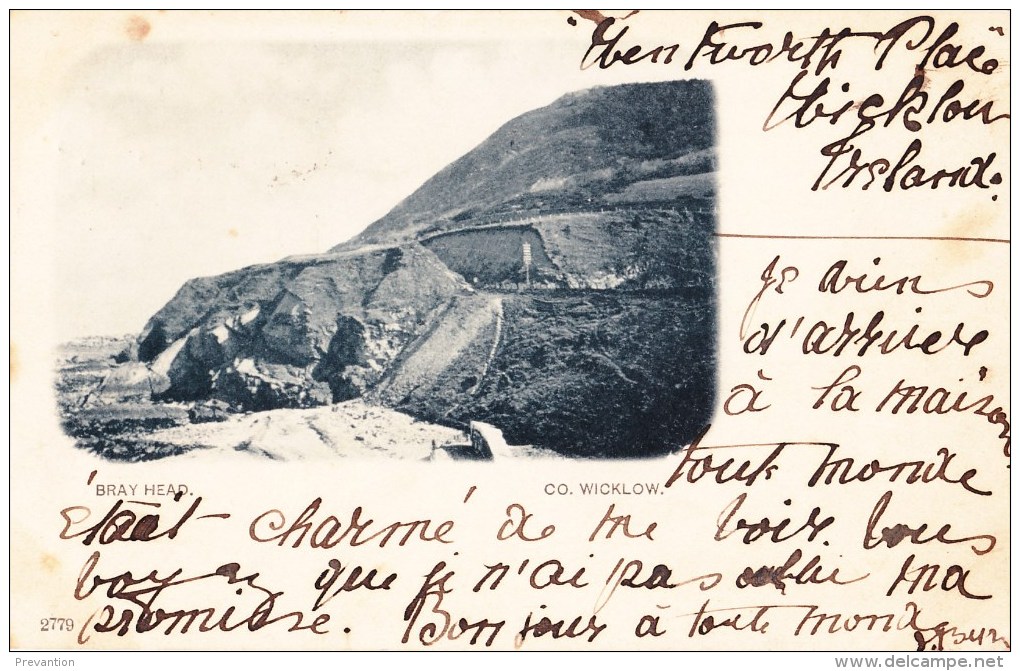 Wentworth Place
Wicklow
Ireland.
Je viens
d'arriver
à la maison
tout monde
BRAY HEAD.
CO. WICKLOW.
était charmé de me voir. Vous
voyez que je n'ai pas oublié ma
promisse. Bonjour à tout monde
2779
Prevantion
www.delcampe.net